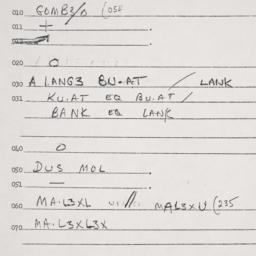 010 GOMB3/0 (058
011 + .
020 0
030 A LANG3 BU.AT / LANK
031 KU.AT EQ BU.AT /
BANK EQ LANK
040 0
050 DUS MOL .
051 — .
060 MA.L3XL // MAL3XU (235
070 MA.L3XL3X